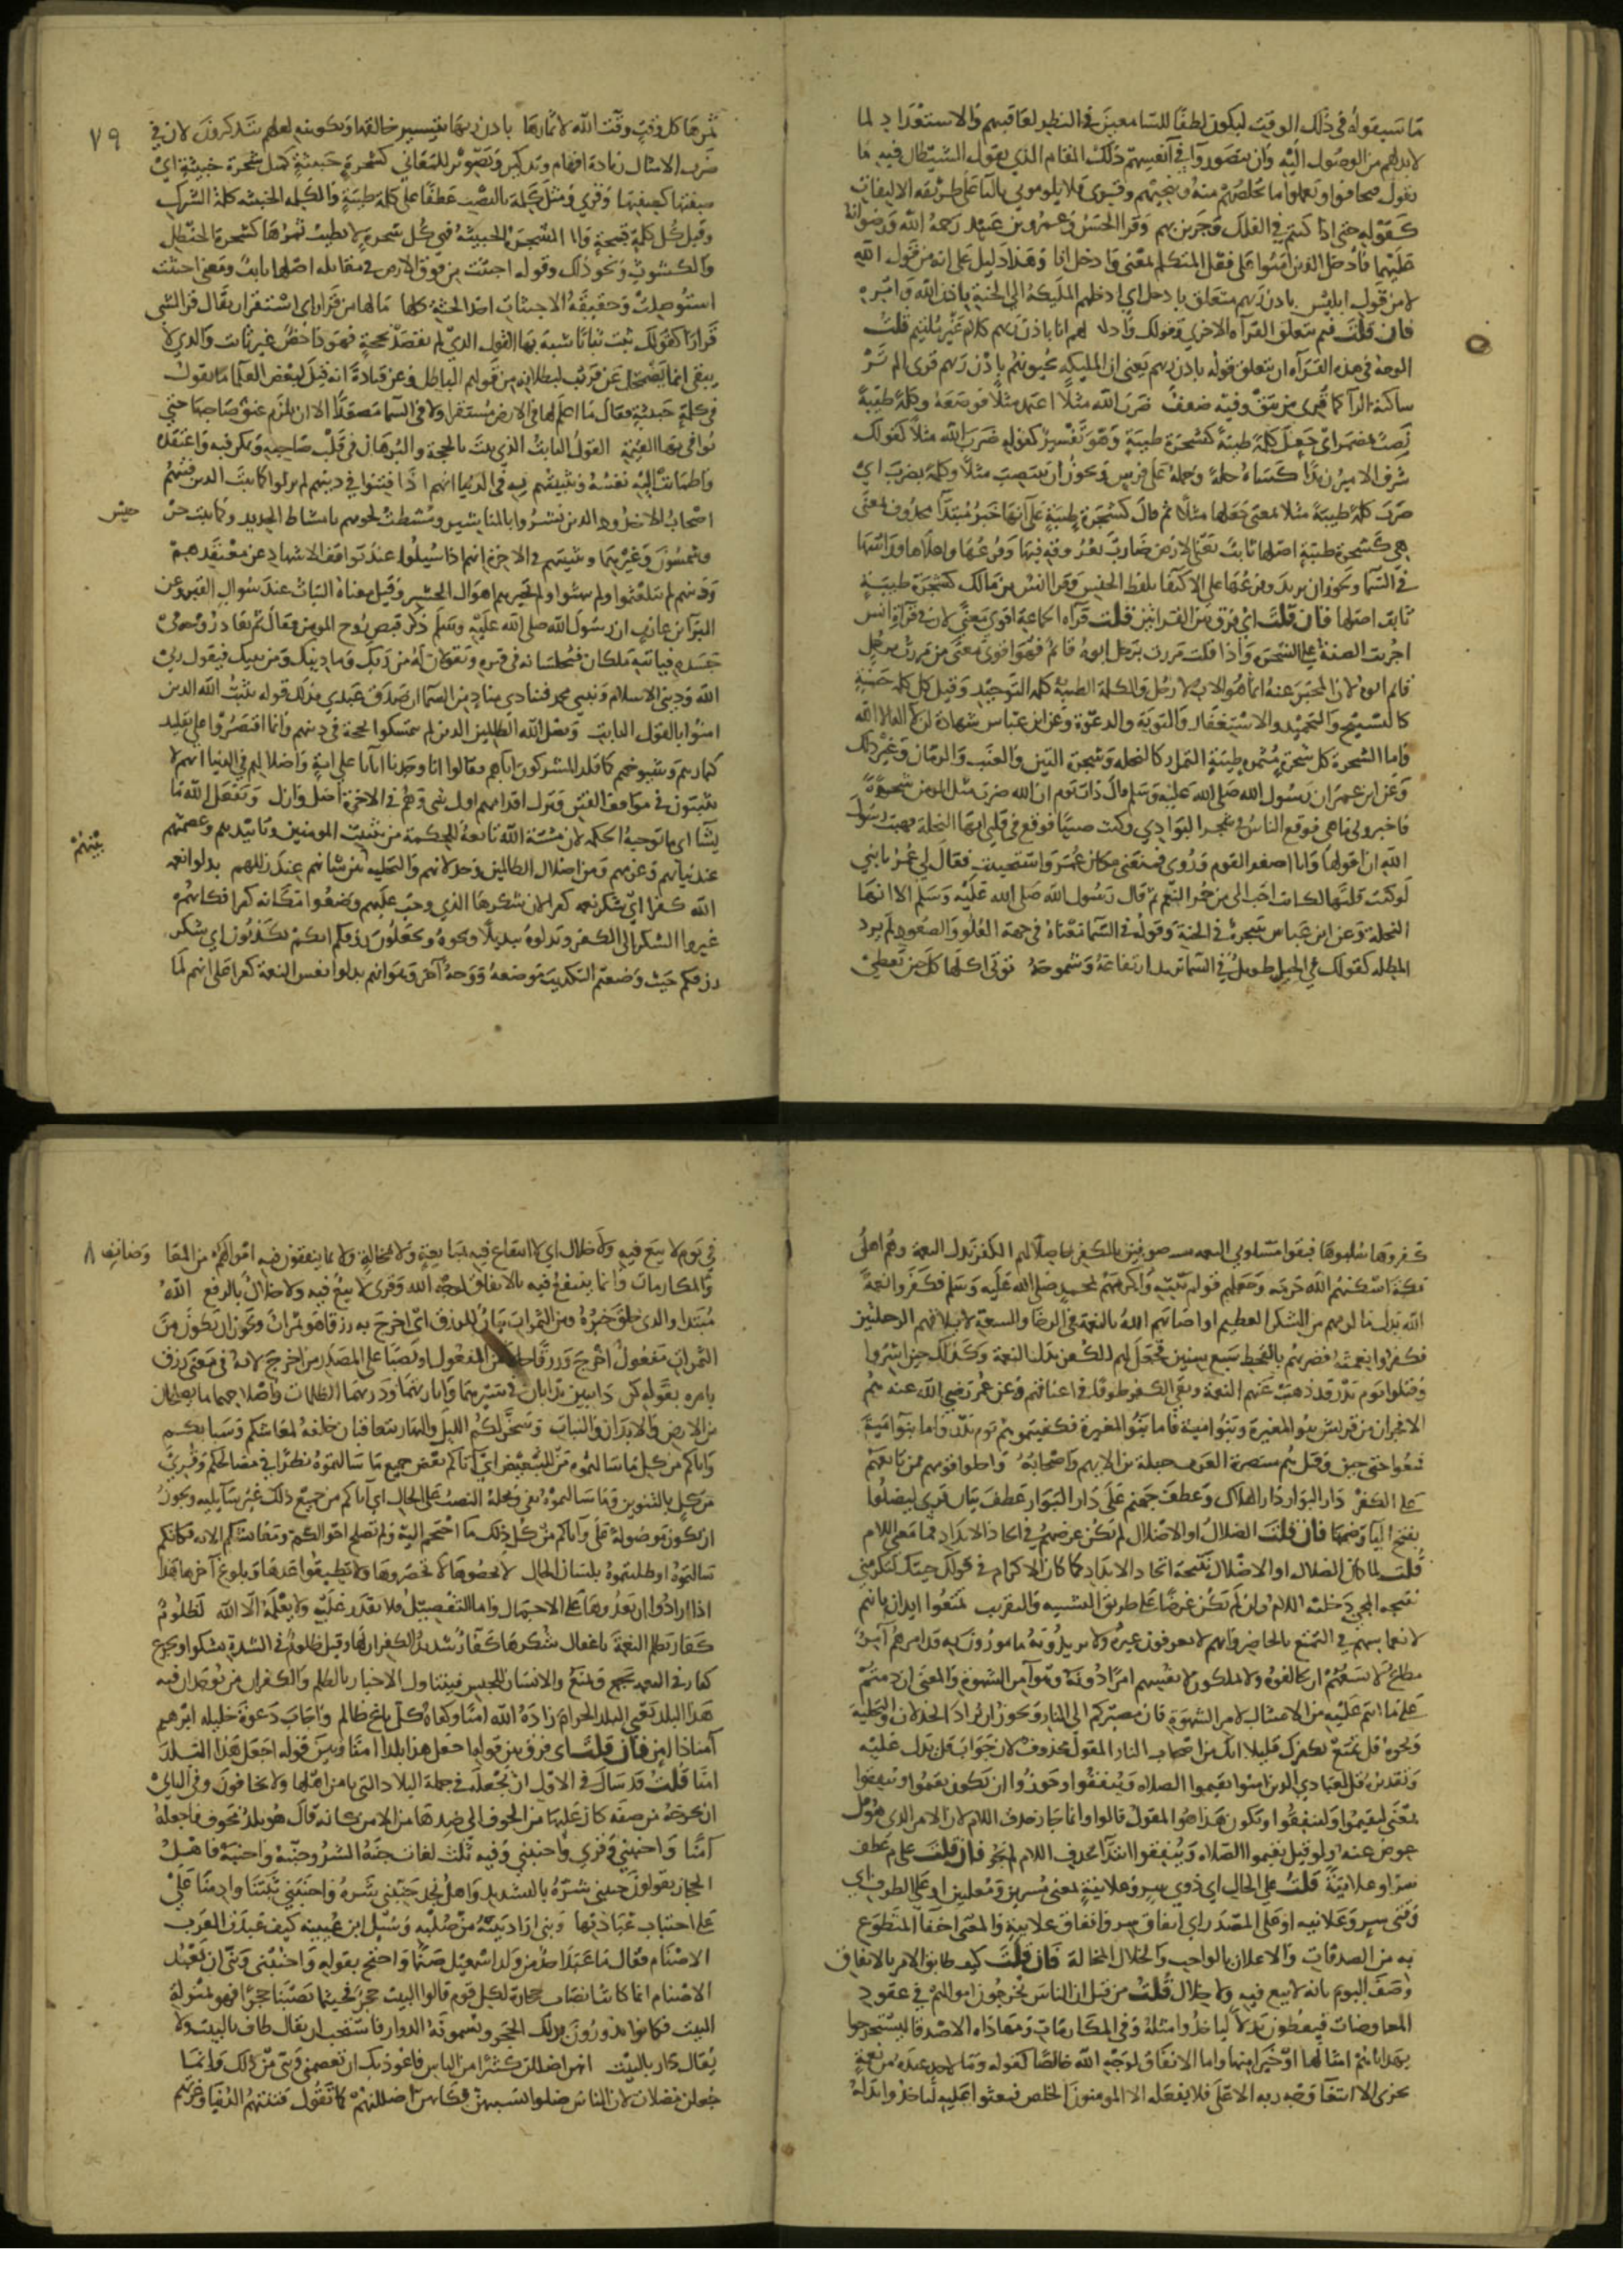 ما سيقوله في ذلك الوقت ليكون لطفا للسامعين في النظر لعاقبتهم والاستعداد لما
لا بد لهم من الوصول اليه وان يتصوروا في انفسهم ذلك المقام الذي يقول الشيطان فيه ما
يقول فيخافوا ويعملوا ما يخلصهم منه وينجيهم وقرى فلا يلوموني بالياء على طريقة الالتفات
كقوله حتى اذا كنتم في الفلك وجرين بهم وقرا الحسن وعمرو بن عبيد رحمة الله ورضوانه
عليهما وأدخل الذين امنوا على فعل المتكلم بمعنى وادخل انا وهذا دليل على انه من قول الله
لا من قول ابليس باذن ربهم متعلق بادخل اي ادخلهم الملئكة الى الجنة باذن الله وامره
فان قلت فبم يتعلق القراة الاخرى وقولك وادخلهم انا باذن ربهم كلام غير ملتئم قلت
الوجه في هذه القراة ان يتعلق قوله باذن ربهم يعني ان المليكة يحيونهم باذن ربهم قرى الم تر
ساكنة الرا كما قرى من يتق وفيه ضعف ضرب الله مثلا اعتمد مثلا فوضعه وكلمة طيبة
نصب بمضمر اي جعل كلمة طيبة كشجرة طيبة وهو تفسير كقوله ضرب الله مثلا كقولك
شرف الامير زيدا كساه حلة وحمله على فرس ويجوز ان ينتصب مثلا وكلمة بضرب اي
ضرب كلمة طيبة مثلا بمعنى جعلها مثلا ثم قال كشجرة طيبة على انها خبر مبتدأ محذوف بمعنى
هي كشجرة طيبة اصلها ثابت يعني في الارض ضارب بعروقه فيها وفرعها واعلاها وراسها
في السما ويجوز ان يريد وفرعها على الاكتفا بلفظ الجنس وقرا انس بن مالك كشجرة طيبة
ثابت اصلها فان قلت اي فرق بين القراتين قلت قراة الجماعة اقوى معنى لان في قراة انس
اجريت الصفة على الشجرة واذا قلت مررت برجل ابوه قائم فهو اقوى معنى من مررت برجل
قائم ابوه لان المخبر عنه انما هو الاب لا رجل والكلمة الطيبة كلمة التوحيد وقيل كل كلمة حسنة
كالتسبيح والتحميد والاستغفار والتوبة والدعوة وعن ابن عباس شهادة ان لا اله الا الله
واما الشجرة كل شجرة مثمرة طيبة الثمار كالنخلة وشجرة التين والعنب والرمان وغير ذلك
وعن ابن عمر ان رسول الله صلى الله عليه وسلم قال ذات يوم ان الله ضرب مثل المومن شجرة
فاخبروني ما هي فوقع الناس في شجر البوادي وكنت صبيا فوقع في قلبي انها النخلة فهبت رسول
الله ان اقولها وانا اصغر القوم وروى فمنعني مكان عمر واستحييت فقال لي عمر يا بني
لو كنت قلتها لكانت احب الي من حمر النعم ثم قال رسول الله صلى الله عليه وسلم الا انها
النخلة وعن ابن عباس شجرة في الجنة وقوله في السما معناه في جهة العلو والصعود لم يرد
المظلة كقولك في الجبل طويل في السما تريد ارتفاعه وشموخه تؤتى اكلها كل حين تعطي
٧٩
ثمرها كل وقت وقته الله لاثمارها باذن ربها بتيسير خالقها وتكوينه لعلهم يتذكرون لان في
ضرب الامثال زيادة افهام وتذكير وتصوير للمعاني كشجرة خبيثة كمثل شجرة خبيثة اي
صفتها كصفتها وقرى ومثل كلمة بالنصب عطفا على كلمة طيبة والكلمة الخبيثة كلمة الشرك
وقيل كل كلمة قبيحة واما الشجرة الخبيثة فهي كل شجرة لا يطيب ثمرها كشجرة الحنظل
والكشوث ونحو ذلك وقوله اجتثت من فوق الارض في مقابلة اصلها ثابت ومعنى اجتثت
استوصلت وحقيقة الاجتثاث اخذ الجثة كلها ما لها من قرار اي استقرار يقال قر الشي
قرارا كقولك ثبت ثباتا شبه بها القول الذي لم يعضد بحجة فهو داحض غير ثابت والذي لا
يبقى انما يضمحل عن قريب لبطلانه من قولهم الباطل وعن قتادة انه قيل لبعض العلما ما تقول
في كلمة خبيثة فقال ما اعلم لها في الارض مستقرا ولا في السما مصعدا الا ان تلزم عنق صاحبها حتى
يوافي بها القيمة القول الثابت الذي يثبت بالحجة والبرهان في قلب صاحبه وتمكن فيه واعتقده
واطمانت اليه نفسه وتثبيتهم به في الدنيا انهم اذا فتنوا في دينهم لم يزلوا كما ثبت الذين فتنهم
اصحاب الاخدود الذين نشروا بالمناشير ومشطت لحومهم بامشاط الحديد وكما ثبت جرجيس
وشمسون وغيرهما وتثبيتهم في الاخرة انهم اذا سيلوا عند تواقف الاشهاد عن معتقدهم
ودينهم لم يتلعثموا ولم يبهتوا ولم تحيرهم اهوال الحشر وقيل معناه الثبات عند سوال القبر وعن
البرآ بن عازب ان رسول الله صلى الله عليه وسلم ذكر قبض روح المومن فقال ثم تعاد روحه في
جسده فياتيه ملكان فيجلسانه في قبره ويقولان له من ربك وما دينك ومن نبيك فيقول ربي
الله وديني الاسلام ونبيي محمد فينادي مناد من السما ان صدق عبدي فذلك قوله يثبت الله الذين
امنوا بالقول الثابت ويضل الله الظلمين الذين لم يتمسكوا بحجة في دينهم وانما اقتصروا على تقليد
كبارهم وشيوخهم كما قلد المشركون اباهم فقالوا انا وجدنا آبآنا على امة واضلالهم في الدنيا انهم لا
يثبتون في مواقف الفتن وتزل اقدامهم اول شي وهم في الاخرة اضل وازل ويفعل الله ما
يشآ اي ما توجبه الحكمة لان مشية الله تابعة للحكمة من تثبيت المومنين وتاييدهم وعصمتهم
عند ثباتهم وعزمهم ومن اضلال الظالمين وخذلانهم والتخلية بينهم وبين شانهم عند زللهم بدلوا نعمة
الله كفرا اي شكر نعمه كفرا لان شكرها الذي وجب عليهم وضعوا مكانه كفرا فكانهم
غيروا الشكر الى الكفر وبدلوه تبديلا ونحوه وتجعلون رزقكم انكم تكذبون اي شكر
رزقكم حيث وضعتم التكذيب موضعه ووجه آخر وهو انهم بدلوا نفس النعمة كفرا على انهم لما
كفروها سلبوها فبقوا مسلوبي النعمة موصوفين بالكفر حاصلا لهم الكفر بدل النعمة وهم اهل
مكة اسكنهم الله حرمه وجعلهم قوام بيته واكرمهم بمحمد صلى الله عليه وسلم فكفروا نعمة
الله بدل ما لزمهم من الشكر العظيم او اصابهم الله بالنعمة في الرخا والسعة لايلافهم الرحلتين
فكفروا نعمته فضربهم بالقحط سبع سنين فحصل لهم الكفر بدل النعمة وكذلك حين اسروا
وقتلوا يوم بدر قد ذهبت عنهم النعمة وبقي الكفر طوقا في اعناقهم وعن عمر رضي الله عنه هم
الافجران من قريش بنو المغيرة وبنو امية فاما بنو المغيرة فكفيتموهم يوم بدر واما بنو امية
فمتعوا حتى حين وقيل هم متنصرة العرب جبلة بن الايهم واصحابه واحلوا قومهم ممن تابعهم
على الكفر دار البوار دار الهلاك وعطف جهنم على دار البوار عطف بيان قرى ليضلوا
بفتح اليا وضمها فان قلت الضلال او الاضلال لم يكن غرضهم في اتخاذ الانداد فما معنى اللام
قلت لما كان الضلال او الاضلال نتيجة اتخاذ الانداد كما كان الاكرام في قولك جيتك لتكرمني
نتيجة المجي دخلته اللام وان لم يكن غرضا على طريق التشبيه والتقريب تمتعوا ايذان بانهم
لانغماسهم في التمتع بالحاضر وانهم لا يعرفون غيره ولا يريدونه مامورون به قد امرهم آمر
مطاع لا يسعهم ان يخالفوه ولا يملكون لانفسهم امرا دونه وهو آمر الشهوة والمعنى ان دمتم
على ما انتم عليه من الامتثال لامر الشهوة فان مصيركم الى النار ويجوز ان يراد الخذلان والتخلية
ونحوه قل تمتع بكفرك قليلا انك من اصحاب النار المقول محذوف لان جواب قل يدل عليه
وتقديره قل لعبادي الذين امنوا يقيموا الصلاة وينفقوا وجوزوا ان يكون يقيموا وينفقوا
بمعنى ليقيموا ولينفقوا ويكون هذا هو المقول قالوا وانما جاز حذف اللام لان الامر الذي هو قل
عوض عنه ولو قيل يقيموا الصلاة وينفقوا ابتدا بحذف اللام لم يجز فان قلت علام عطف
سرا وعلانية قلت على الحال اي ذوي سر وعلانية بمعنى مسرين ومعلنين او على الظرف اي
وقتي سر وعلانيه او على المصدر اي انفاق سر وانفاق علانية والمعنى اخفا المتطوع
به من الصدقات والاعلان بالواجب والخلال المخالة فان قلت كيف طابق الامر بالانفاق
وصف اليوم بانه لا بيع فيه ولا خلال قلت من قبل ان الناس يخرجون اموالهم في عقود
المعاوضات فيعطون بدلا لياخذوا مثله وفي المكارمات ومهاداة الاصدقا ليستجروا
بهداياهم امثالها او خيرا منها واما الانفاق لوجه الله خالصا كقوله وما لاحد عنده من نعمة
تجزى الا ابتغا وجه ربه الاعلى فلا يفعله الا المومنون الخلص فبعثوا عليه لياخذوا بدله
في يوم لا بيع فيه ولا خلال اي لا انتفاع فيه بمبايعة ولا بمخالة ولا بما ينفقون فيه اموالهم من المعا وضات
والمكارمات وانما ينتفع فيه بالانفاق لوجه الله وقرى لا بيع فيه ولا خلال بالرفع الله
مبتدا والذي خلق خبره ومن الثمرات بيان للرزق اي اخرج به رزقا هو ثمرات ويجوز ان يكون من
الثمرات مفعول اخرج ورزقا حالا من المفعول او نصبا على المصدر من اخرج لانه في معنى رزق
بامره بقوله كن دايبين يدأبان في سيرهما وانارتهما ودرءهما الظلمات واصلاحهما ما يصلحان
من الارض والابدان والنبات وسخر لكم الليل والنهار يتعاقبان خلفة لمعاشكم وسباتكم
وآتاكم من كل ما سالتموه من للتبعيض اي آتاكم بعض جميع ما سالتموه نظرا في مصالحكم وقرى
من كل بالتنوين وما سالتموه نفي ومحله النصب على الحال اي آتاكم من جميع ذلك غير سآيليه ويجوز
ان يكون موصولة على وآتاكم من كل ذلك ما احتجتم اليه ولم تصلح احوالكم ومعايشكم الا به فكانكم
سالتموه او طلبتموه بلسان الحال لا تحصوها لا تحصروها ولا تطيقوا عدها وبلوغ آخرها هذا
اذا ارادوا ان يعدوها على الاجمال واما التفصيل فلا يقدر عليه ولا يعلمه الا الله لظلوم
كفار يظلم النعمة باغفال شكرها كفار شديد الكفران لها وقيل ظلوم في الشدة يشكوا ويجزع
كفار في النعمة يجمع ويمنع والانسان للجنس فيتناول الاخبار بالظلم والكفران من يوجدان فيه
هذا البلد يعني البلد الحرام زاده الله امنا وكفاه كل باغ ظالم واجاب دعوة خليله ابرهيم
آمنا ذا امن فان قلت اي فرق بين قوله اجعل هذا بلدا امنا وبين قوله اجعل هذا البلد
امنا قلت قد سال في الاول ان يجعله في جملة البلاد التي يامن اهلها ولا يخافون وفي الثاني
ان يخرجه من صفة كان عليها من الخوف الى ضدها من الامن كانه قال هو بلد مخوف فاجعله
آمنا واجنبني وقرى واجنبني وفيه ثلث لغات جنبه الشر وجنبه واجنبه فاهل
الحجاز يقولون جنبني شره بالتشديد واهل نجد جنبني شره واجنبني ثبتنا وادمنا على
على اجتناب عبادتها وبني اراد بنيه من صلبه وسيل ابن عيينه كيف عبدت العرب
الاصنام فقال ما عبد احد من ولد اسمعيل صنما واحتج بقوله واجنبني وبني ان نعبد
الاصنام انما كانت انصاب حجارة لكل قوم قالوا البيت حجر فحيثما نصبنا حجرا فهو بمنزلة
البيت فكانوا يدورون بذلك الحجر ويسمونه الدوار فاستحب ان يقال طاف بالبيت ولا
يقال دار بالبيت انهن اضللن كثيرا من الناس فاعوذ بك ان تعصمني وبني من ذلك وانما
جعلن مضلات لان الناس ضلوا بسببهن فكانهن اضللنهم كما تقول فتنتهم الدنيا وغرتهم